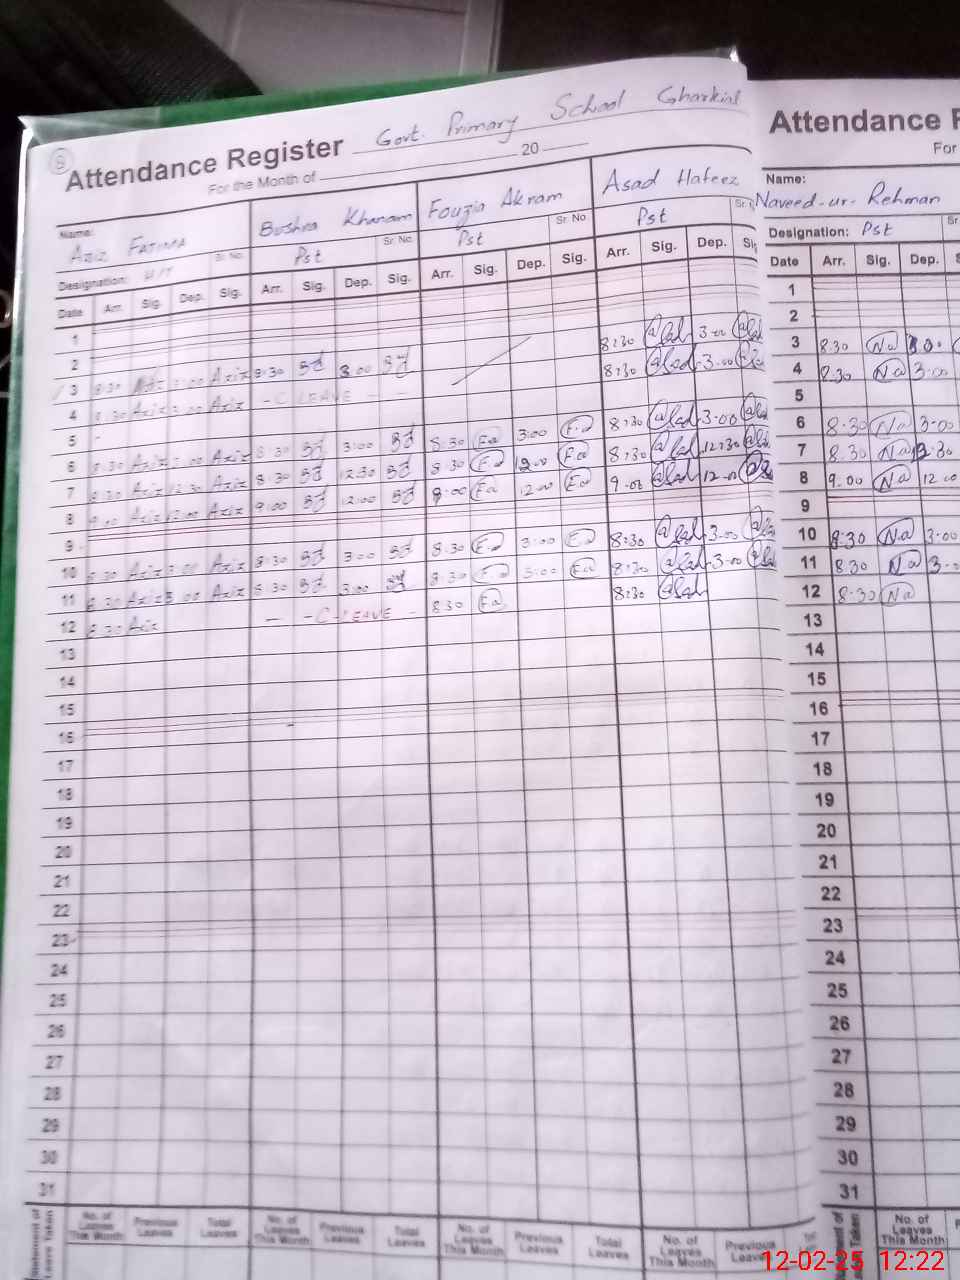 8
Govt. Primary School Gharkial
Attendance Register
For the Month of 20
Name: Aziz Fatima
Bushra Khanam
Fouzia Akram
Asad Hafeez
Designation: H/T Sr. No.
Pst Sr. No.
Pst Sr. No.
Pst
Date Arr. Sig. Dep. Sig. Arr. Sig. Dep. Sig. Arr. Sig. Dep. Sig. Arr. Sig. Dep.
1
2
3 8:30 3:00 Aziz 8:30 3:00 8:30 Asad 3:00
4 8:30 Aziz 3:00 Aziz - C LEAVE - - 8:30 Asad 3:00
5
6 8:30 Aziz 3:00 Aziz 8:30 3:00 8:30 Fa 3:00 Fa 8:30 Asad 3:00
7 8:30 Aziz 12:30 Aziz 8:30 12:30 8:30 Fa Fa 8:30 Asad 12:30
8 9:00 Aziz 12:00 Aziz 9:00 12:00 9:00 Fa 12:00 Fa 9:00 Asad 12:00
9
10 8:30 Aziz 3:00 Aziz 8:30 3:00 8:30 Fa 3:00 Fa 8:30 Asad 3:00
11 8:30 Aziz 3:00 Aziz 8:30 3:00 8:30 Fa 3:00 Fa 8:30 Asad 3:00
12 8:30 Aziz - - C-LEAVE - 8:30 Fa 8:30 Asad
13
14
15
16
17
18
19
20
21
22
23
24
25
26
27
28
29
30
31
Statement of Leave Taken
No. of Leaves This Month Previous Leaves Total Leaves No. of Leaves This Month Previous Leaves Total Leaves No. of Leaves This Month Previous Leaves Total Leaves No. of Leaves This Month Previous Leaves
Attendance R
For
Name:
Naveed-ur-Rehman
Designation: Pst
Date Arr. Sig. Dep.
1
2
3 8:30 Na
4 8:30 Na 3:00
5
6 8:30 Na 3:00
7 8:30 Na
8 9:00 Na 12:00
9
10 8:30 Na 3:00
11 8:30 Na
12 8:30 Na
13
14
15
16
17
18
19
20
21
22
23
24
25
26
27
28
29
30
31
No. of Leaves This Month
12-02-25 12:22